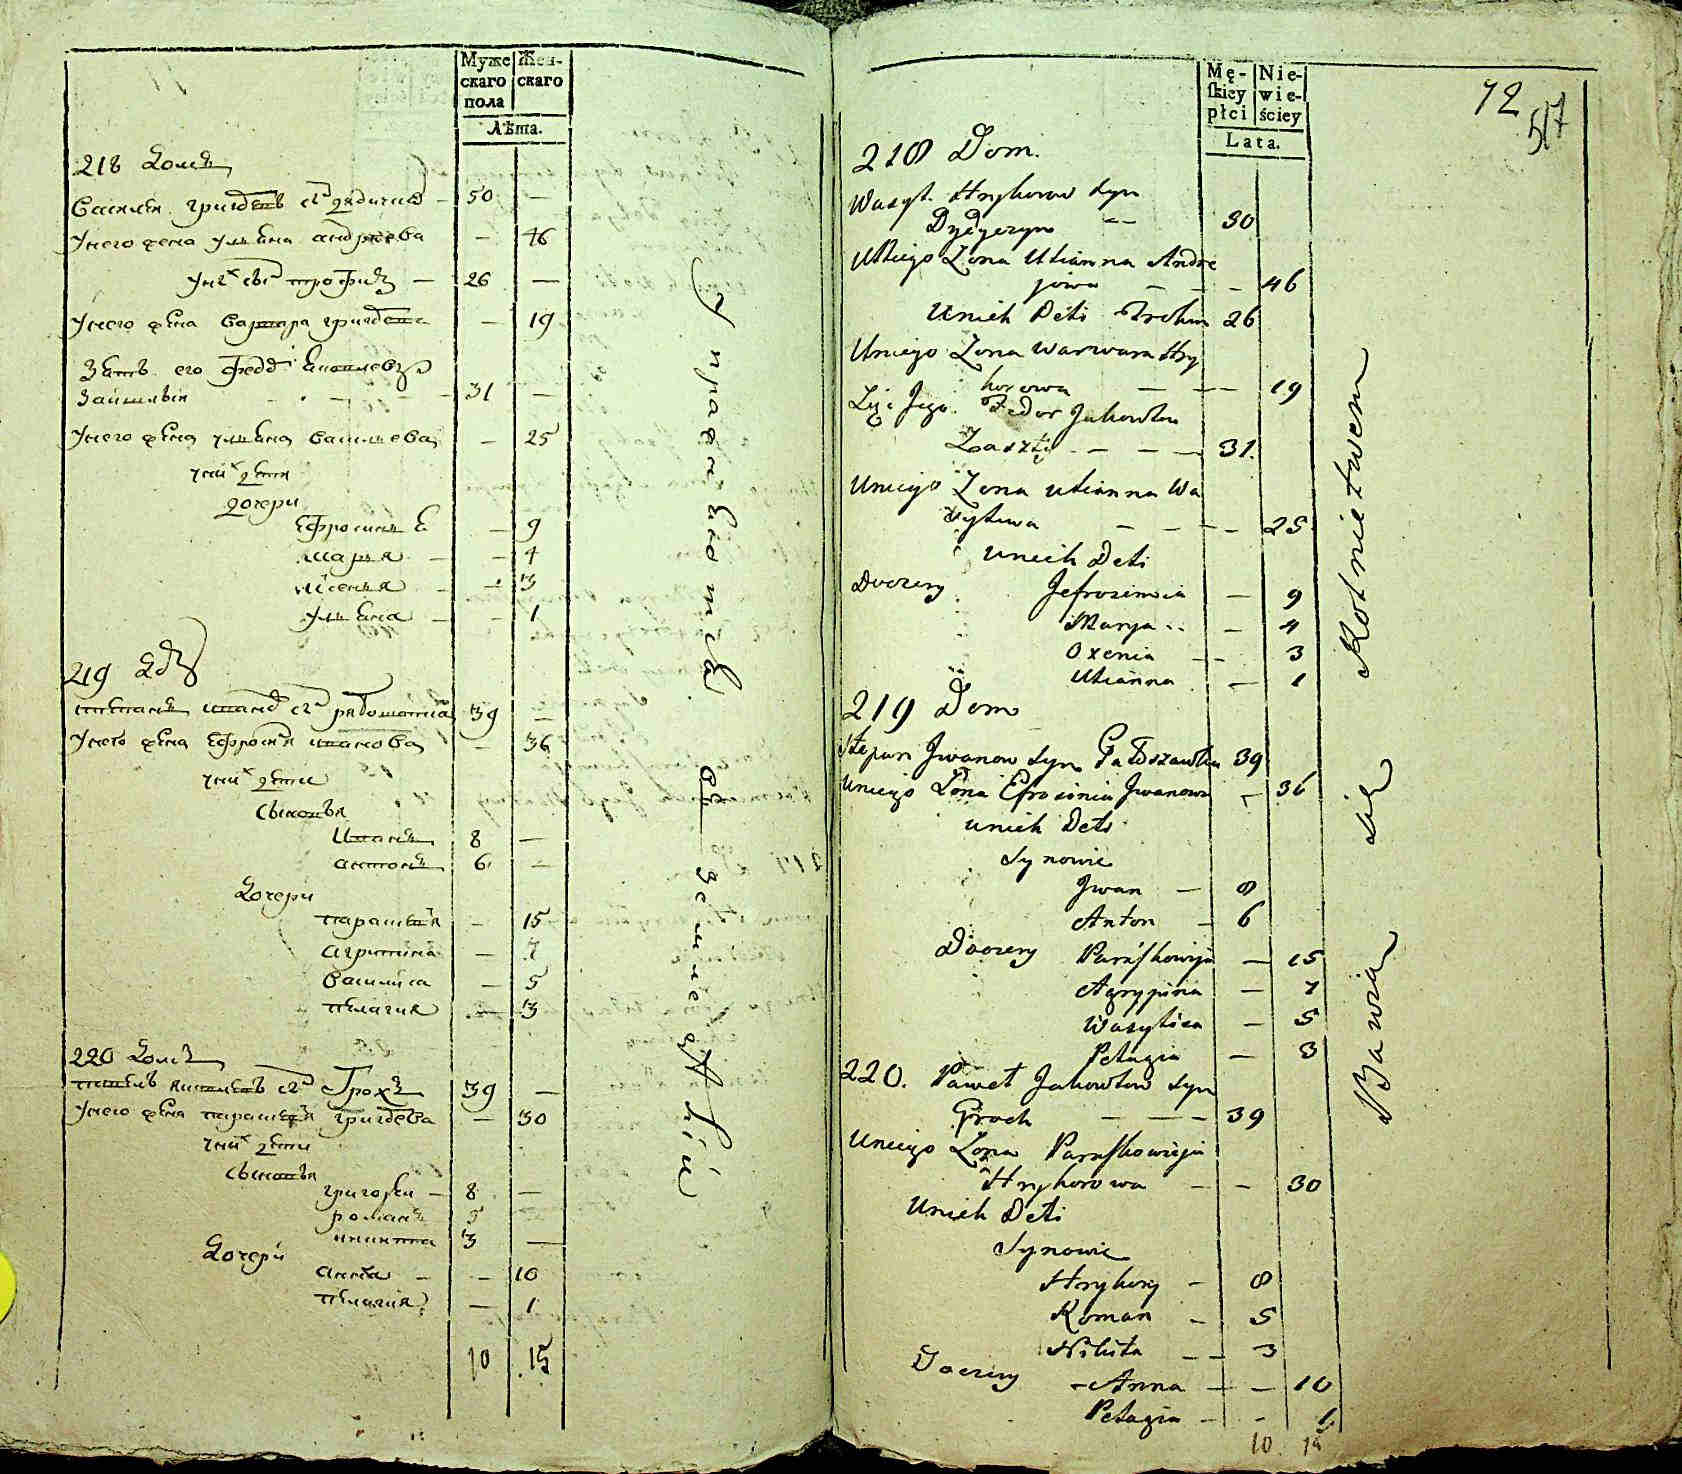 Муже
скаго
пола
Жен-
скаго
Лѣта.
218 Домъ
Василей григоревъ сынъ 50 —
Унего жена ульяна андреева — 46
Уних сынъ трофимъ — 26 —
Унего жена варвара григорева — 19
Зать его федоръ
31 —
Унего жена ульяна васильева — 25
Уних дети
дочери
Ефросинья — 9
марья — 4
— 3
ульяна — 1
219 Домъ
степанъ ивановъ сынъ 39 —
Унего жена Ефросиня иванова — 36
Уних дети
сыновья
Иванъ 8 —
антонъ 6 —
Дочери
парасковя — 15
агрипина — 7
василиса — 5
пелагия — 3
220 Домъ
павелъ яковлевъ сынъ Грохъ 39 —
Унего жена парасковя григорева — 30
Уних дети
сыновья
григорей — 8 —
романъ 5 —
никита 3 —
Дочери
анна — — 10
пелагия — 1
10 15
Упражняются
въ земледелии
Mę-
skiey
płci
Nie-
wie-
ściey
Lata.
72
517
218 Dom.
Wasyl. Hryhorow syn
Dydyczyn — 50
Uniego Zona Ulianna Andre
jowa — — — 46
Unich Deti Trohim 26
Uniego Zona Warwara Hry
horowa — — — 19
Ziąć Jego Fedor Jakowlew
— — — 31.
Uniego Zona Ulianna Wa
sylewa — — — 25
Unich Deti
Doczery Jefrosinnia — 9
Marya .. — 4
Oxenia — — 3
Ulianna — 1
219 Dom
Stepan Jwanow syn 39
Uniego Zona Efrosinia Jwanowa — 36
Unich Deti
Synowie
Jwan — 8
Anton — 6
Doczery Paraskowija — 15
Agrypina — 7
Wasylisa — 5
Pelagia — 3
220. Paweł Jakowlew syn
Groch — — — 39
Uniego Zona Paraskowieja
Hryhorowa — — 30
Unich Deti
Synowie
Hryhory — 8
Roman — 5
Nikita — — 3
Doczery
Anna — — 10
Pelagia — — 1
10
Bawią się Rolnictwem